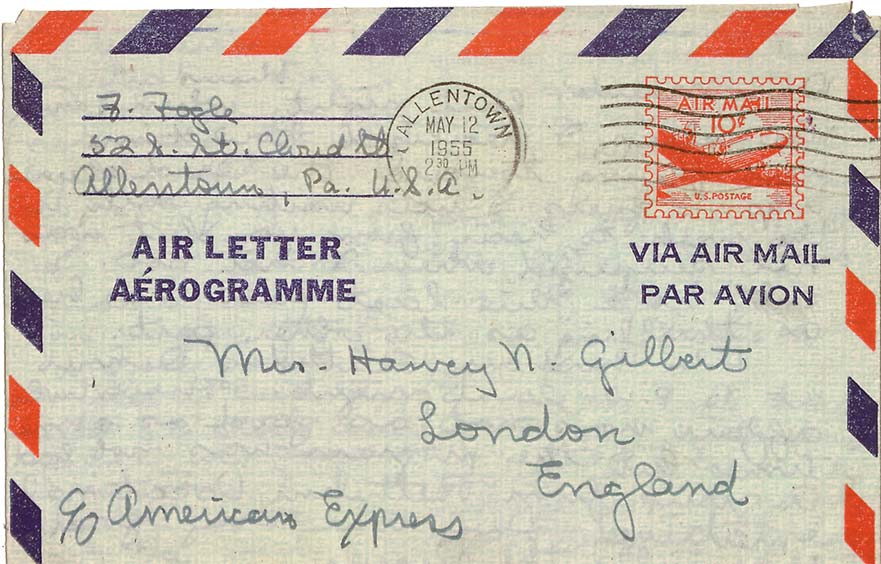 F. Fogle
52 S. St. Cloud St.
Allentown, Pa. U.S.A.
ALLENTOWN
MAY 12
1955
2 30 PM
AIR MAIL
10¢
U.S. POSTAGE
AIR LETTER
AÉROGRAMME
VIA AIR MAIL
PAR AVION
Mrs. Harvey N. Gilbert
London
England
c/o American Express